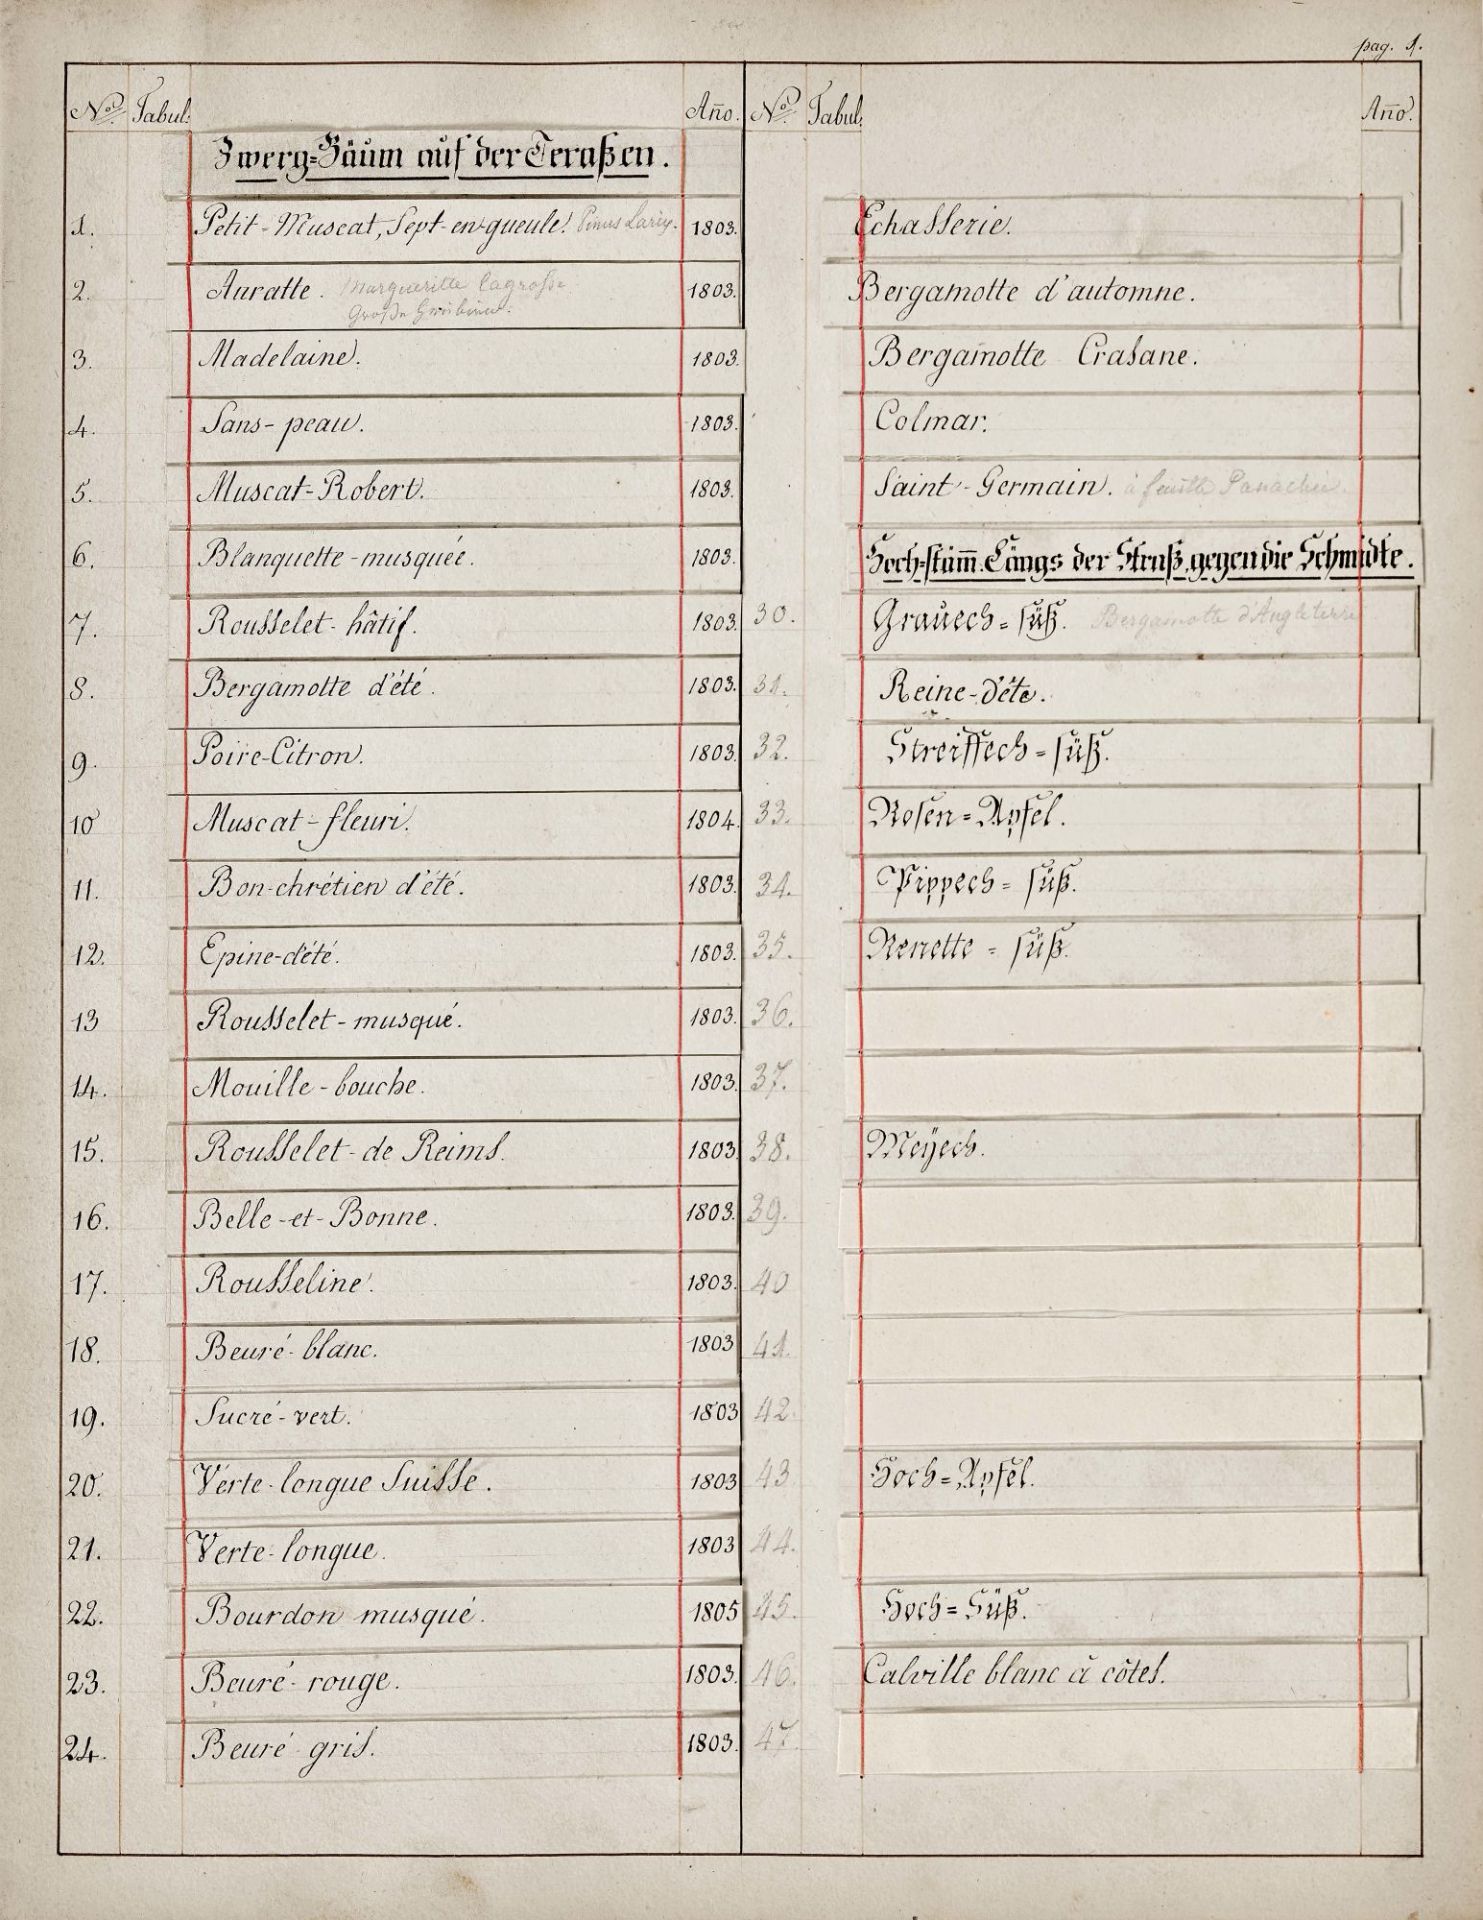 pag. 1.
No. Tabul: Año.
Zwerg=Bäum auf der Teraßen.
1. Petit-Muscat, Sept-en-gueule. Pinus Larix. 1803.
2. Auratte. Margueritte 1803.
Große
3. Madelaine. 1803.
4. Sans-peau. 1803.
5. Muscat-Robert. 1803.
6. Blanquette-musquée. 1803.
7. Rousselet-hâtif. 1803.
8. Bergamotte d'été. 1803.
9. Poire-Citron. 1803.
10 Muscat-fleuri. 1804.
11. Bon-chrétien d'été. 1803.
12. Epine-d'été. 1803.
13 Rousselet-musqué. 1803.
14. Mouille-bouche. 1803.
15. Rousselet-de Reims. 1803.
16. Belle-et-Bonne. 1803.
17. Rousseline. 1803.
18. Beuré-blanc. 1803
19. Sucré-vert. 1803
20. Verte-longue Suisse. 1803
21. Verte-longue. 1803
22. Bourdon musqué. 1805
23. Beuré-rouge. 1803.
24. Beuré gris. 1803.
No. Tabul: Año.
Echasserie.
Bergamotte d'automne.
Bergamotte Crasane.
Colmar.
Saint-Germain. à feuille Panachée.
Hoch=stäm̅. Längs der Straß, gegen die Schmidte.
30. Grauech=süß. Bergamotte d'Angleterre
31. Reine-d'éte.
32. Streiffech=süß.
33. Rosen=Apfel.
34. Pippech=süß.
35. Renette=süß.
36.
37.
38. Meÿech.
39.
40
41.
42.
43 Hoch=Apfel.
44.
45. Hoch=Süß.
46. Calville blanc à côtes.
47.